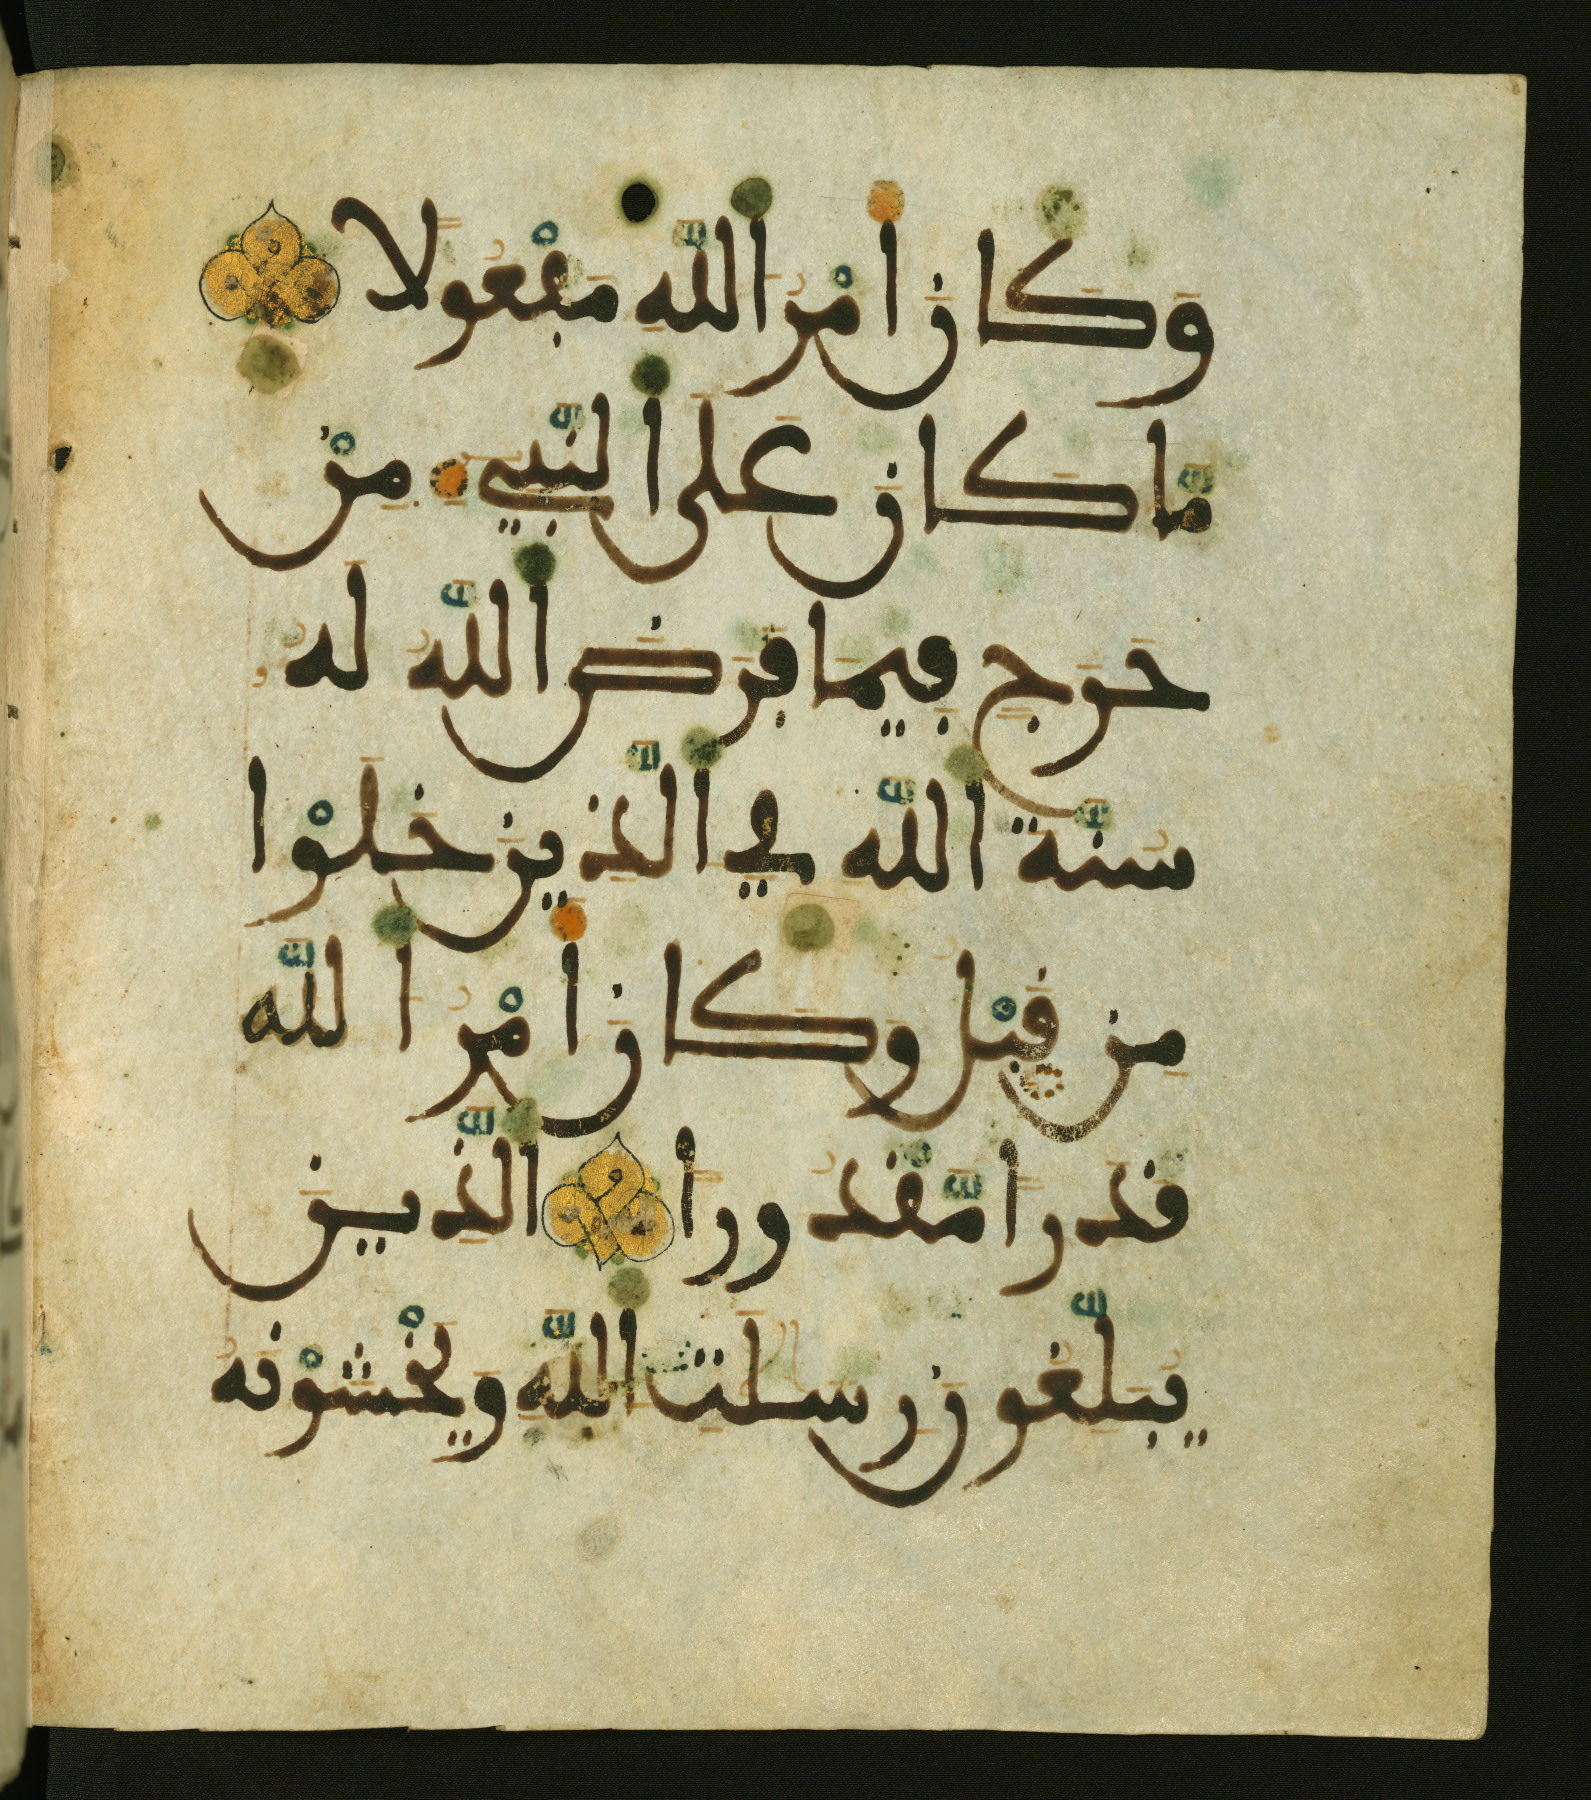 وَكَانَ أَمْرُ اللَّهِ مَفْعُولًا
مَّا كَانَ عَلَى النَّبِيءِ مِنْ
حَرَجٍ فِيمَا فَرَضَ اللَّهُ لَهُ
سُنَّةَ اللَّهِ فِي الَّذِينَ خَلَوْا
مِن قَبْلُ وَكَانَ أَمْرُ اللَّهِ
قَدَرًا مَّقْدُورًا الَّذِينَ
يُبَلِّغُونَ رِسَلَتِ اللَّهِ وَيَخْشَوْنَهُ